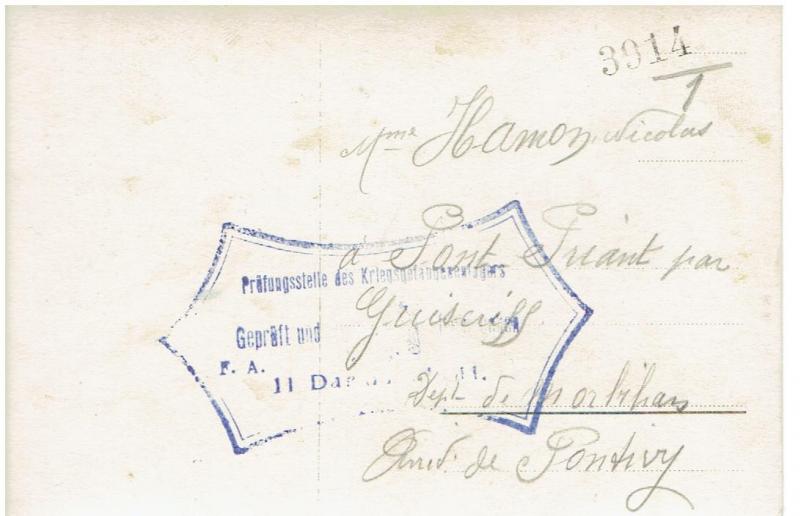 3914
1
Mme Hamon Nicolas
à Pont Priant par
Guiscriff
Dept de Morbihan
Arrd de Pontivy
Prüfungsstelle des Kriegsgefangenenlagers
Geprüft und
F. A.
11